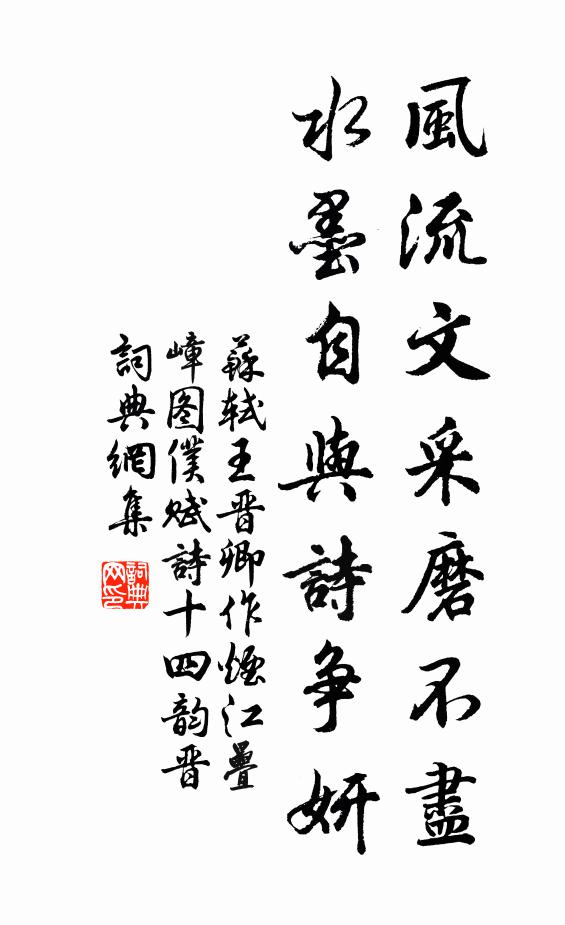 風流文采磨不盡
水墨自與詩争妍
蘇軾王晋卿作煙江疊
嶂图僕賦詩十四韵晋
詞典網集
詞典
网印